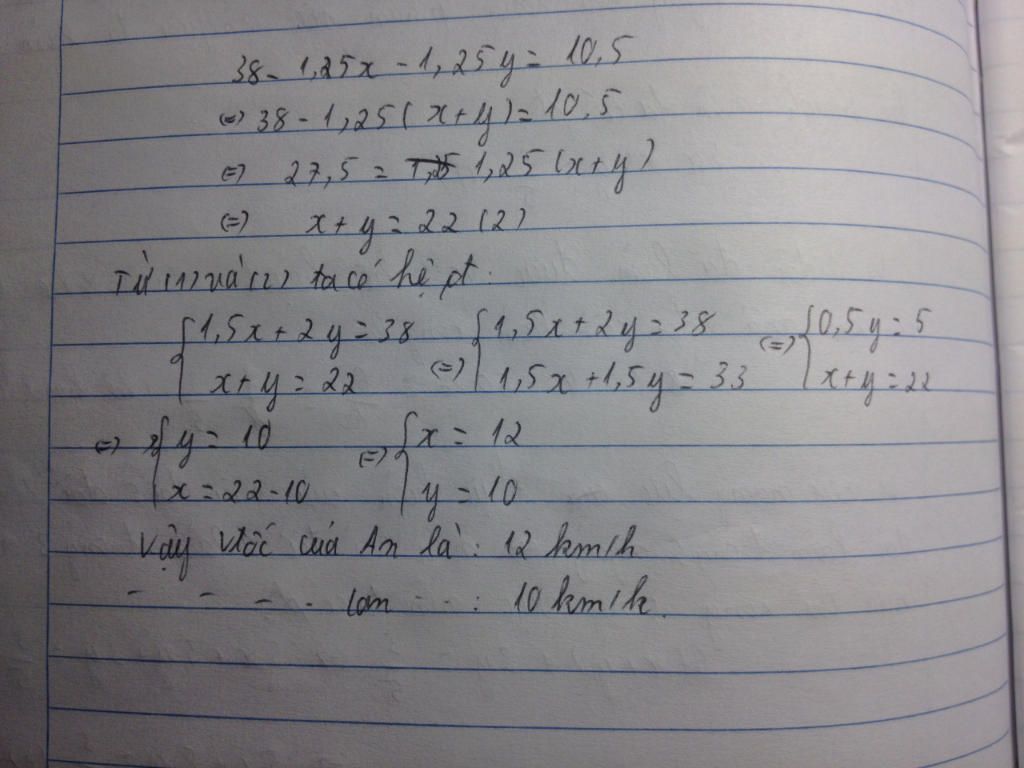 38 - 1,25x - 1,25y = 10,5
(=) 38 - 1,25(x+y) = 10,5
(=) 27,5 = 1,25 (x+y)
(=) x+y = 22 (2)
Từ (1) và (2) ta có hệ pt:
{1,5x + 2y = 38 (=) {1,5x + 2y = 38 (=) {0,5y = 5
x+y = 22 1,5x + 1,5y = 33 x+y = 22
(=) {y = 10 (=) {x = 12
x = 22-10 y = 10
Vậy vtốc của An là : 12 km/h
- - - - Lan - - : 10 km/h.